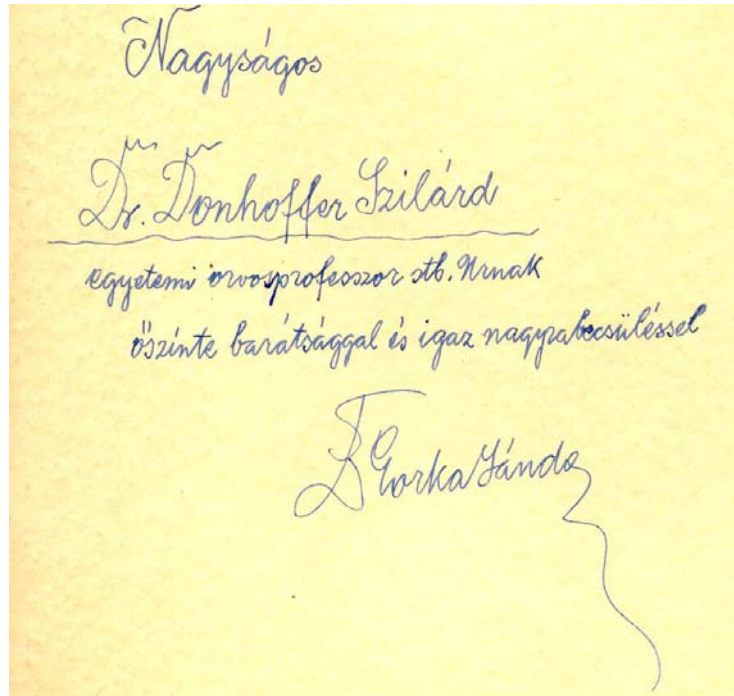 Nagyságos
Dr. Donhoffer Szilárd
egyetemi orvosprofesszor stb. Urnak
őszinte barátsággal és igaz nagyrabecsüléssel
Gorka Sándor